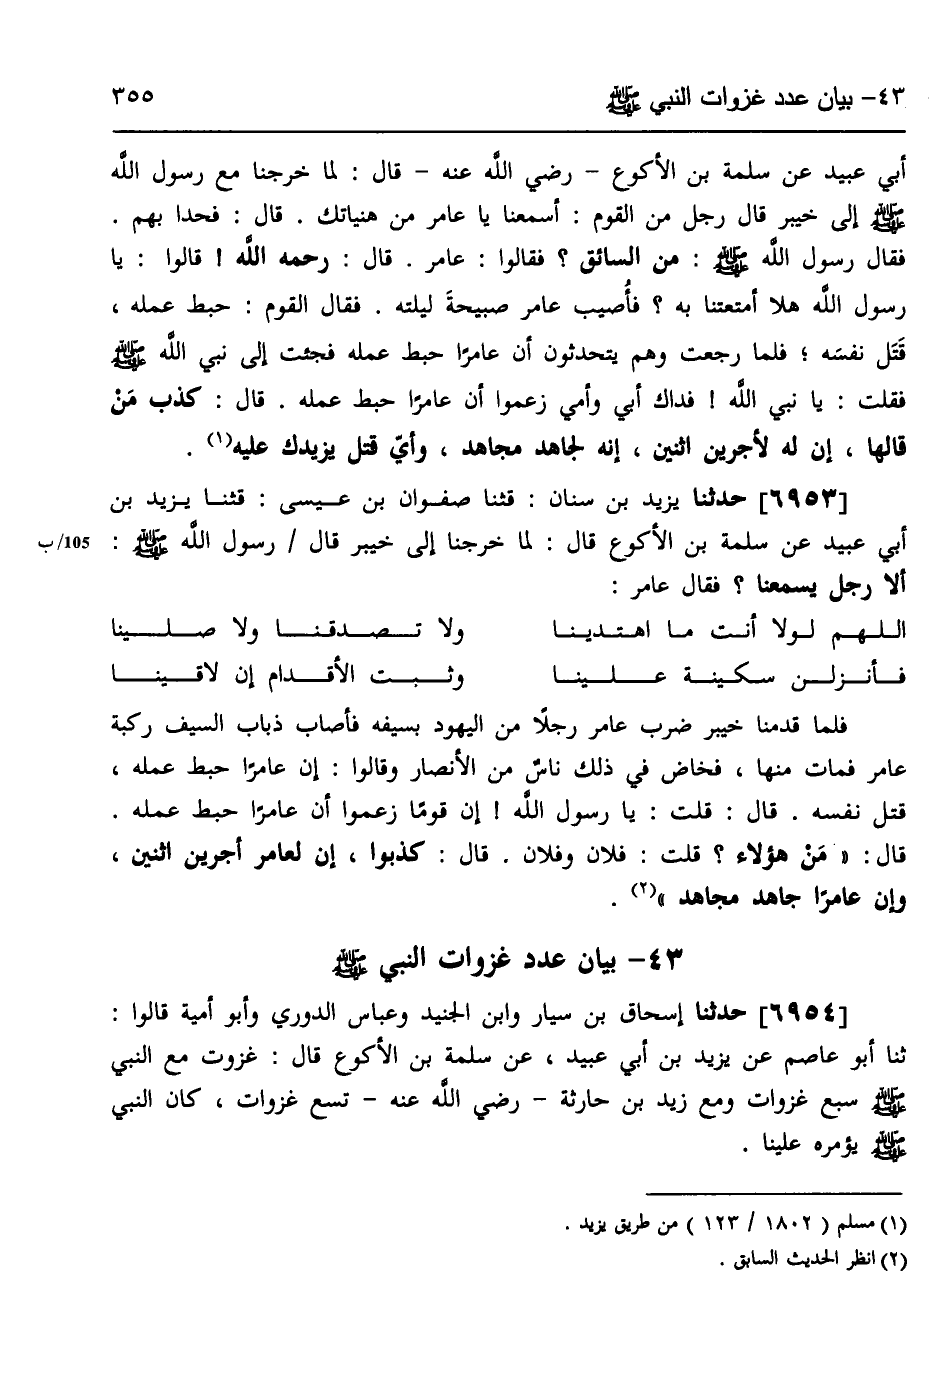 ٤٣- بيان عدد غزوات النبي ﷺ ٣٥٥
أبي عبيد عن سلمة بن الأكوع – رضي اللَّه عنه – قال : لما خرجنا مع رسول اللَّه
ﷺ إلى خيبر قال رجل من القوم : أسمعنا يا عامر من هنياتك . قال : فحدا بهم .
فقال رسول اللَّه ﷺ : من السائق ؟ فقالوا : عامر . قال : رحمه اللَّه ! قالوا : يا
رسول اللَّه هلا أمتعتنا به ؟ فأُصيب عامر صبيحةَ ليلته . فقال القوم : حبط عمله ،
قَتَل نفسَه ؛ فلما رجعت وهم يتحدثون أن عامرًا حبط عمله فجئت إلى نبي اللَّه ﷺ
فقلت : يا نبي اللَّه ! فداك أبي وأمي زعموا أن عامرًا حبط عمله . قال : كذب مَنْ
قالها ، إن له لأجرين اثنين ، إنه لجاهد مجاهد ، وأيّ قتل يزيدك عليه(١) .
[٦٩٥٣] حدثنا يزيد بن سنان : قثنا صفوان بن عيسى : قثنا يزيد بن
أبي عبيد عن سلمة بن الأكوع قال : لما خرجنا إلى خيبر قال / رسول اللَّه ﷺ : 105/ب
ألا رجل يسمعنا ؟ فقال عامر :
اللهم لولا أنت ما اهتدينا ولا تصدقنا ولا صلينا
فأنزلن سكينة علينا وثبت الأقدام إن لاقينا
فلما قدمنا خيبر ضرب عامر رجلًا من اليهود بسيفه فأصاب ذباب السيف ركبة
عامر فمات منها ، فخاض في ذلك ناسٌ من الأنصار وقالوا : إن عامرًا حبط عمله ،
قتل نفسه . قال : قلت : يا رسول اللَّه ! إن قومًا زعموا أن عامرًا حبط عمله .
قال : « مَنْ هؤلاء ؟ قلت : فلان وفلان . قال : كذبوا ، إن لعامر أجرين اثنين ،
وإن عامرًا جاهد مجاهد »(٢) .
٤٣- بيان عدد غزوات النبي ﷺ
[٦٩٥٤] حدثنا إسحاق بن سيار وابن الجنيد وعباس الدوري وأبو أمية قالوا :
ثنا أبو عاصم عن يزيد بن أبي عبيد ، عن سلمة بن الأكوع قال : غزوت مع النبي
ﷺ سبع غزوات ومع زيد بن حارثة – رضي اللَّه عنه – تسع غزوات ، كان النبي
ﷺ يؤمره علينا .
(١) مسلم ( ١٨٠٢ / ١٢٣ ) من طريق يزيد .
(٢) انظر الحديث السابق .